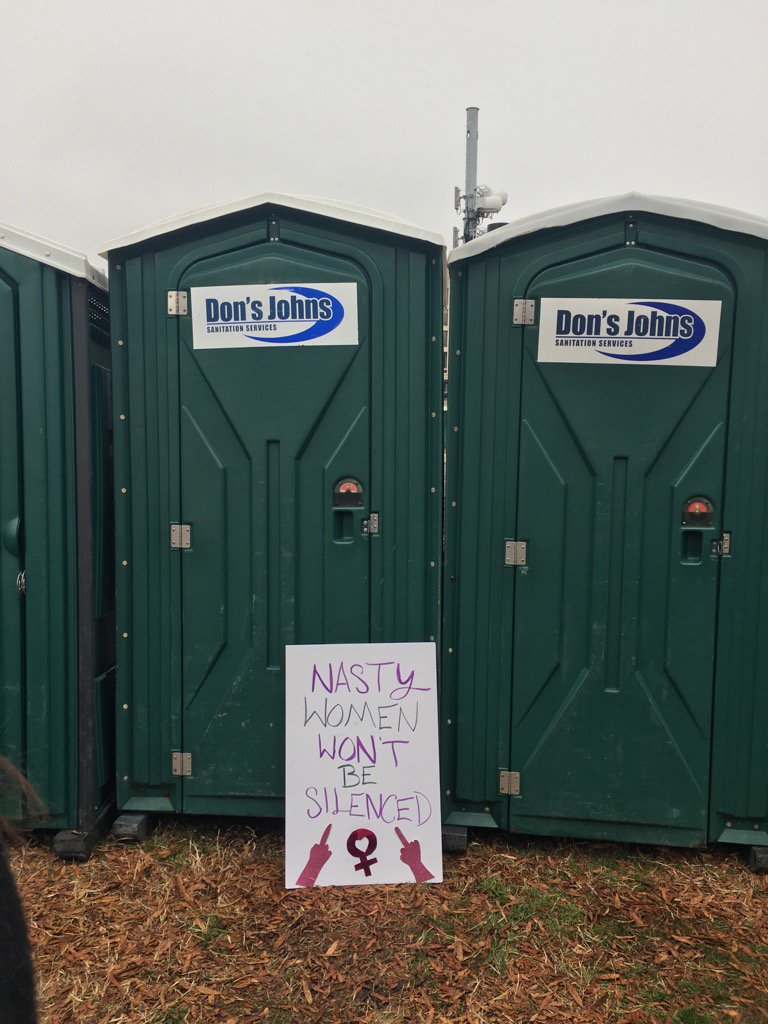 Don's Johns
SANITATION SERVICES
Don's Johns
SANITATION SERVICES
NASTY
WOMEN
WON'T
BE
SILENCED